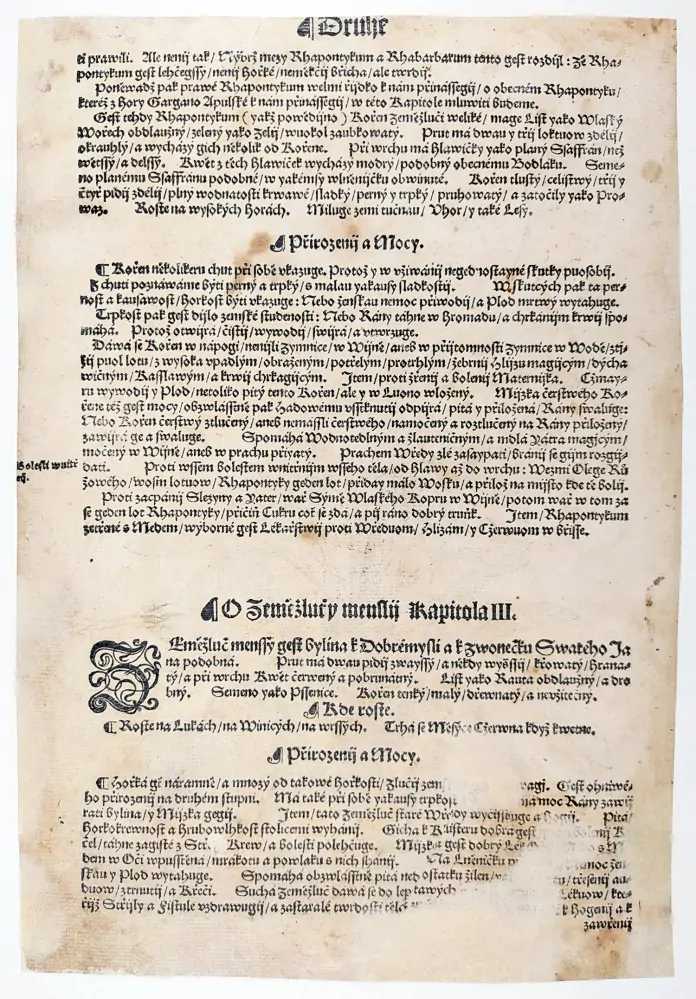 Druhé
ti prawili. Ale nenij tak/ Nýbrž mezy Rhapontykum a Rhabarbarum tento gest rozdijl: Že Rha-
pontykum gest lehčegssý/ nenij Hořké/ neměkčij břicha/ ale twrdij.
Poněwadž pak prawé Rhapontykum welmi řijdko k nám přinássegij/ o obecném Rhapontyku/
kteréž z Hory Gargano Apulské k nám přinássegij/ w této Kapitole mluwiti budeme.
Gest tehdy Rhapontykum (yakž powědijno) Kořen Zeměžluči weliké/ mage List yako Wlaský
Wořech obdlaužný/ zelený yako Zelij/ wuokol zaubkowatý. Prut má dwau y třij loktuow zdélij/
okrauhlý/ a wycházý gich několik od Kořene. Při wrchu má Hlawičky yako planý Ssaffrán/ než
wětssý/ a delssý. Kwět z těch Hlawiček wycházý modrý/ podobný obecnému Bodláku. Seme-
no planému Ssaffránu podobné/ w yakémsy wlněnijčku obwinuté. Kořen tlustý/ celistwý/ třij y
čtyř pijdij zdélij/ plný wodnatosti krwawé/ sladký/ perný y trpký/ pruhowatý/ a zatočilý yako Pro-
waz. Roste na wysokých Horách. Miluge zemi tučnau/ Vhor/ y také Lesy.
Přirozenij a Mocy.
Kořen několikeru chut při sobě vkazuge. Protož y w vžíwánij negednostayné skutky puosobij.
Z chuti poznáwáme býti perný a trpký/ s malau yakausy sladkostij. W skutcých pak ta per-
nost a kausawost/ horkost býti vkazuge: Nebo ženskau nemoc přiwodij/ a Plod mrtwý wytahuge.
Trpkost pak gest dijlo zemské studenosti: Nebo Rány táhne w hromadu/ a chrkánijm krwij spo-
máhá. Protož otwijrá/ čistij/ wywodij/ swijrá/ a vtwrzuge.
Dáwá se Kořen w nápogi/ nenijli Zymnice/ w Wijně/ aneb w přijtomnosti Zymnice w Wodě/ ztij-
žij puol lotu/ z wysoka vpadlým/ obraženým/ potřelým/ protrhlým/ žebrnij Hlijzu magijcým/ dýcha
wičným/ Kasslawým/ a krwij chrkagijcým. Item/ proti žřenij a bolenij Maternijka. Czmay-
ru wywodij y Plod/ netoliko pitý tento Kořen/ ale y w Luono wložený. Mijzka čerstwého Ko-
řene též gest mocy/ obzwlásstně pak Hadowému vsstknutij odpijrá/ pitá y přiložená/ Rány swaluge:
Nebo Kořen čerstwý ztlučený/ aneb nemássli čerstwého/ namočený a roztlučený na Rány přiložený/
zawijrá ge a swaluge. Spomáhá Wodnotedlným a Žlauteničným/ a mdlá Játra magijcým/
močený w Wijně/ aneb w prachu přiyatý. Prachem Wředy zlé zasaypati/ bránij se gijm rozgij-
dati. Proti wssem bolestem wnitřnijm wsseho těla/ od hlawy až do wrchu: Wezmi Olege Rů
žowého/ wosm lotuow/ Rhapontyky geden lot/ přiday málo Wosku/ a přilož na mijsto kde tě bolij.
Bolesti wnitř
nij.
Proti zacpánij Sleziny a Jater/ wař Sýmě Wlaského Kopru w Wijně/ potom wař w tom za
se geden lot Rhapontyky/ přičiň Cukru což se zdá/ a pij ráno dobrý truňk. Item/ Rhapontykum
zetřené s Medem/ wýborné gest Lékařstwij proti Wředuom/ Hlizám/ y Czerwuom w břisse.
O Zeměžlučy menssij Kapitola III.
ZEměžluč menssý gest bylina k Dobrémysli a k Zwonečku Swatého Ja
na podobná. Prut má dwau pijdij zwayssý/ a někdy wyssij/ křowatý/ hrana-
tý/ a při wrchu Kwět čerwený a pobrunátný. List yako Rauta obdlaužný/ a dro
bný. Semeno yako Pssenice. Kořen tenký/ malý/ dřewnatý/ a neužitečný.
Kde roste.
Roste na Lukách/ na Winicých/ na wrssých. Trhá se Měsýce Czerwna když kwetne.
Přirozenij a Mocy.
Hořká gest náramně/ a mnozý od takowé hořkosti/ Žlučij zem wagij. Gest ohniwé-
ho přirozenij na druhém stupni. Má také při sobě yakausy trpkost na moc Rány zawij
rati bylina/ y Mijzka gegij. Item/ tato Zeměžluč staré Wředy wyčisťuge a Pitá/
Horkokrewnost a hrubowlhkost stolicemi wyhánij. Gicha k Klijsteru dobrá gest bolenij K
čel/ táhne zagisté z Krew/ a bolesti polehčuge. Mijzka gest dobrý s M
dem w Oči wpusstěná/ mrákotu a powlaku s nich shánij. Na Lněničku nemoc žen
skau y Plod wytahuge. Spomáhá obzwlásstně pitá neb ostatku žilen/ třesenij au-
duow/ ztrnutij/ a Křeči. Suchá Zeměžluč dáwá se do leptawých Lékuow/ kte-
řijž Střijly a Fistule vzdrawugij/ a zastaralé twrdosti k Hogenij a k
zawřenij